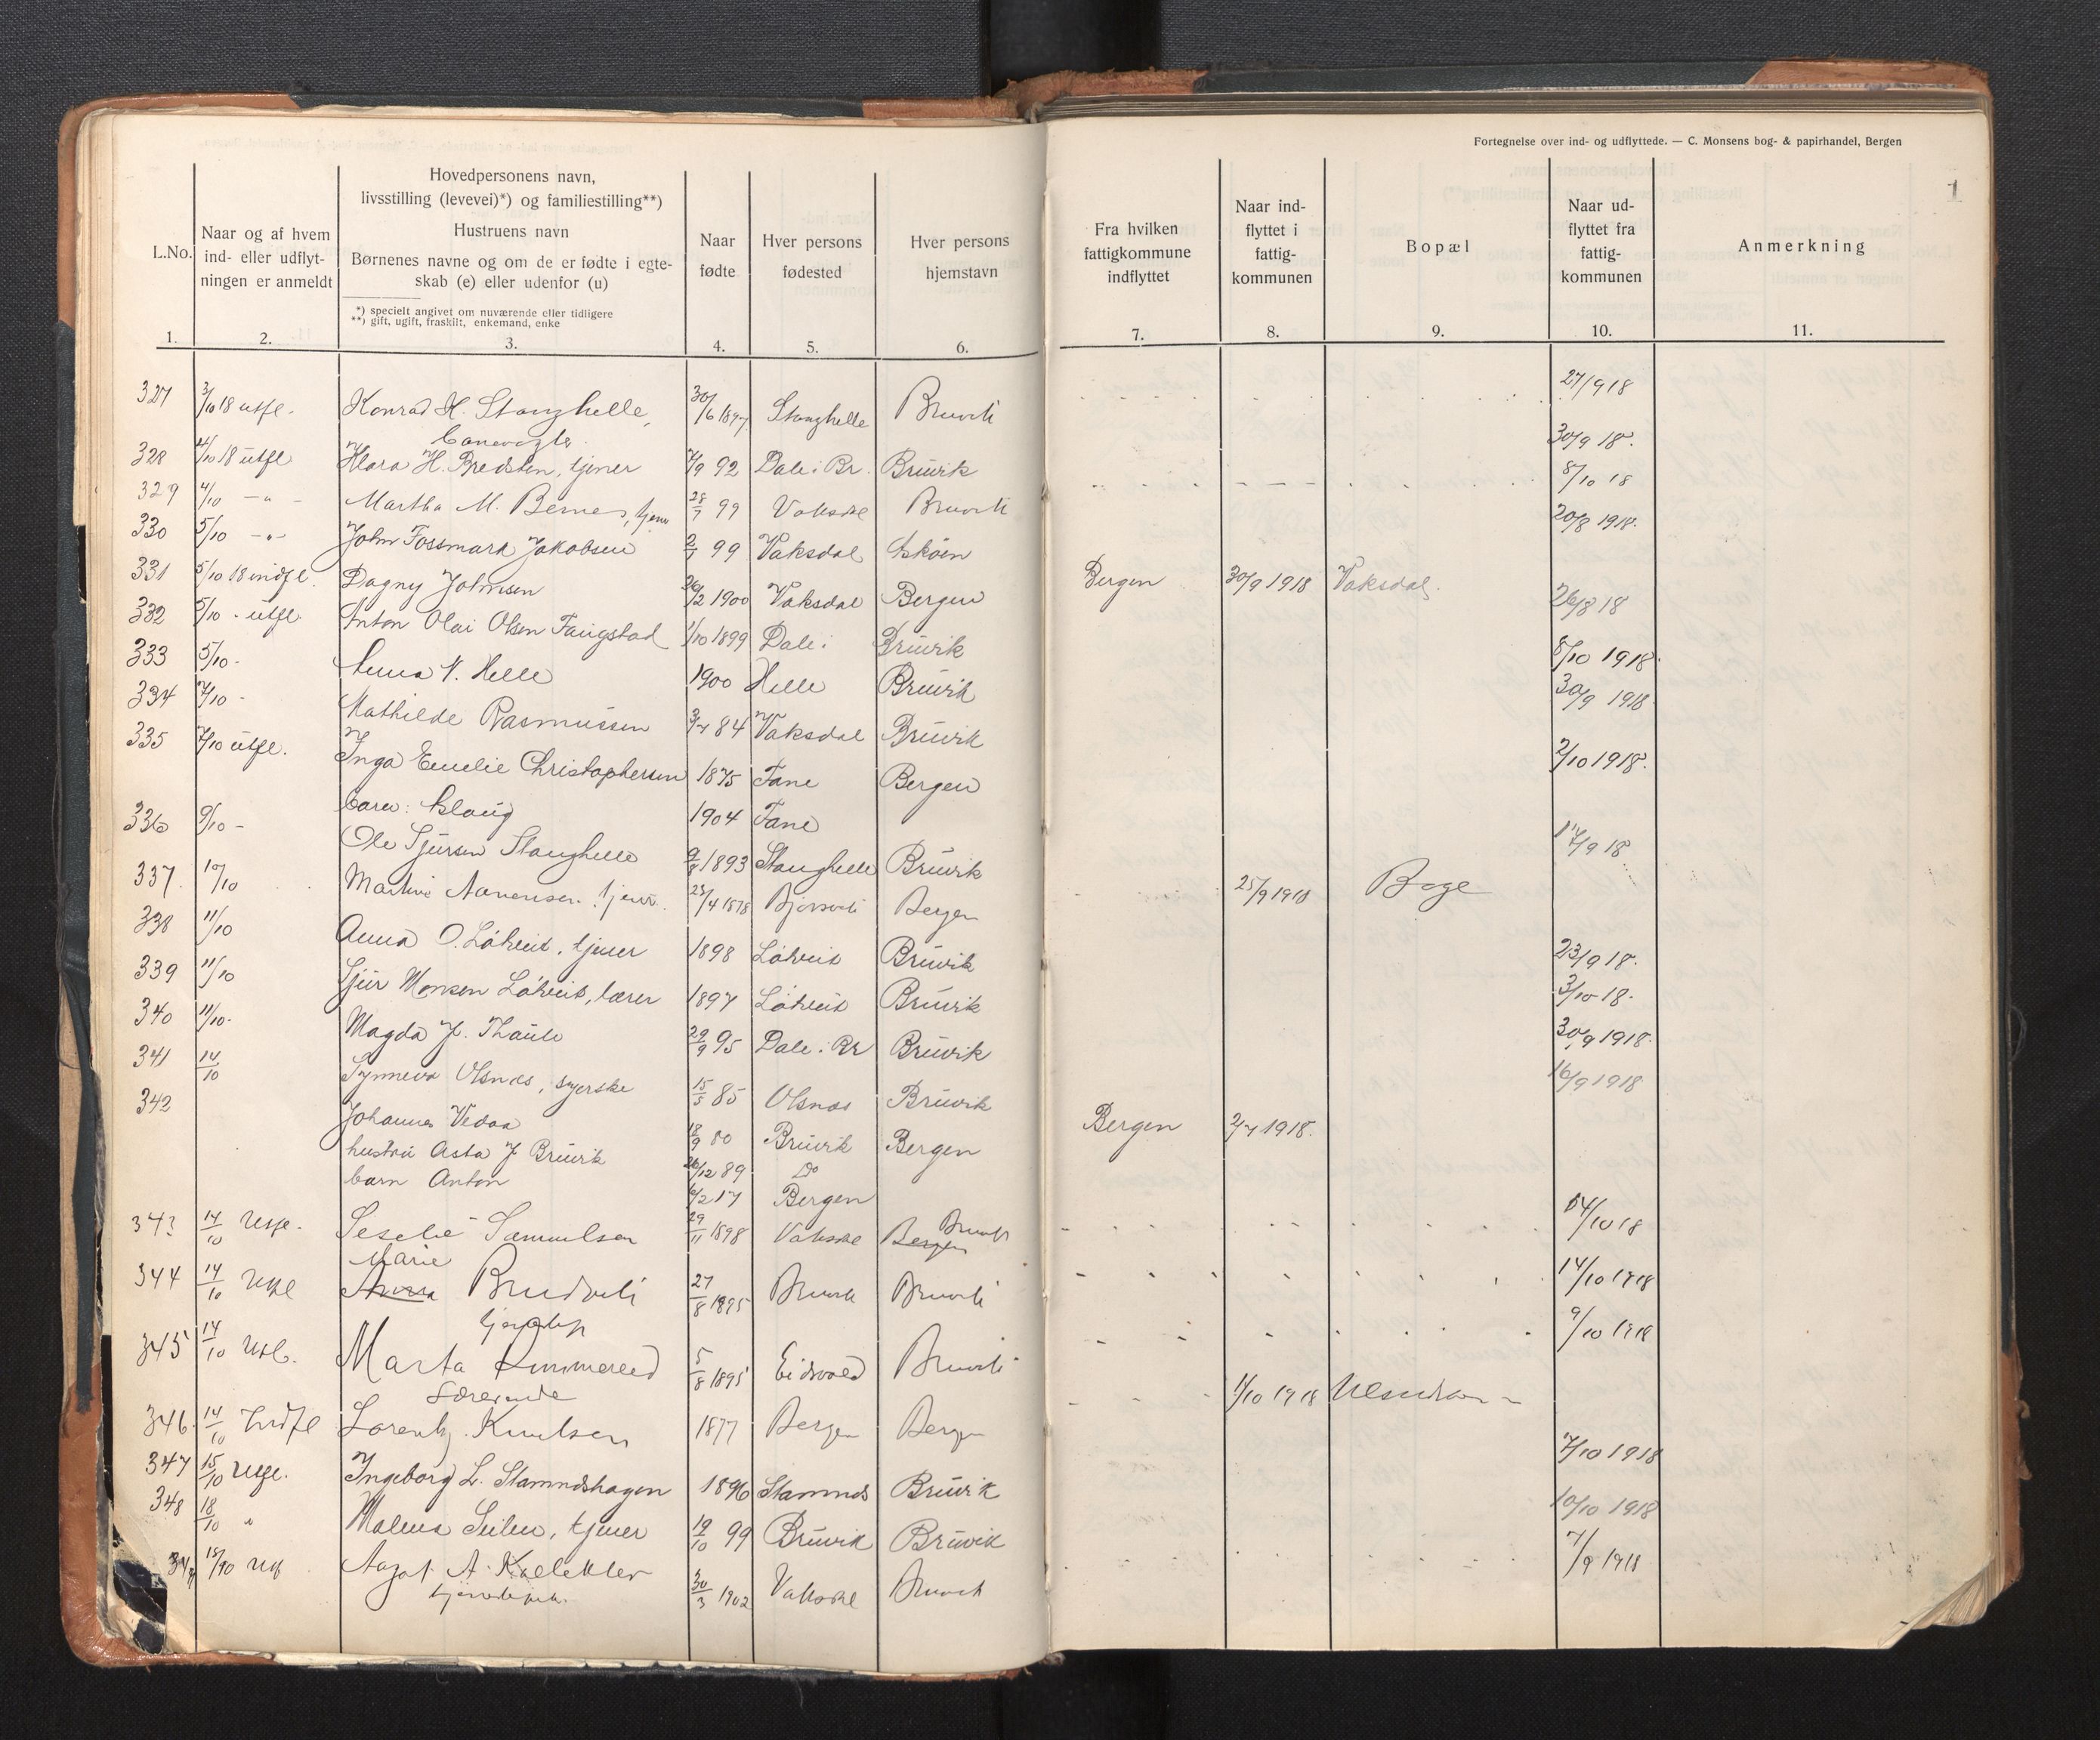 Fortegnelse over ind- og udflyttede. — C. Monsens bog- & papirhandel, Bergen
1
L.No.
Naar og af hvem
ind- eller udflyt-
ningen er anmeldt
Hovedpersonens navn,
livsstilling (levevei)*) og familiestilling**)
Hustruens navn
Børnenes navne og om de er fødte i egte-
skab (e) eller udenfor (u)
*) specielt angivet om nuværende eller tidligere
**) gift, ugift, fraskilt, enkemand, enke
Naar
fødte
Hver persons
fødested
Hver persons
hjemstavn
Fra hvilken
fattigkommune
indflyttet
Naar ind-
flyttet i
fattig-
kommunen
Bopæl
Naar ud-
flyttet fra
fattig-
kommunen
Anmerkning
1. 2. 3. 4. 5. 6. 7. 8. 9. 10. 11.
327 3/10 18 utfl. Konrad H. Stanghelle, 30/6 1897 Stanghelle Bruvik 27/9 18
328 4/10 18 utfl. Klara H. Bredsten, tjener 7/9 92 Dale i Br. Bruvik 30/9 18.
329 4/10 - " - Martha M. Bernes, tjener 28/7 99 Vaksdal Bruvik 8/10 18
330 5/10 - " - John Fossmark Jakobsen 99 Vaksdal Askøen 20/8 1918.
331 5/10 18 indfl. Dagny Johnsen 26/2 1900 Vaksdal Bergen Bergen 30/9 1918 Vaksdal.
332 5/10 - utfl. Anton Olai Olsen Faugstad 1/10 1899 Dale i Bruvik 26/8 18
333 5/10 - Anna N. Helle 1900 Helle Bruvik 8/10 1918.
334 7/10 - Mathilde Rasmussen 3/7 84 Vaksdal Bruvik 30/9 1918.
335 7/10 utfl. Inga Emelie Christophersen 1875 Fane Bergen 2/10 1918.
barn: Aslaug 1904 Fane
336 9/10 - Ole Sjursen Stanghelle 1893 Stanghelle Bruvik 17/9 18
337. 10/10 Martine tjener. 23/4 1878 Bergen 25/9 1918 Boge
338 11/10 Anna O. Løtveit, tjener 1898 Løtveit Bruvik 23/9 18.
339 11/10 Sjur Monsen Løtveit, lærer 1897 Løtveit Bruvik 3/10 18.
340 11/10. Magda J. Thaule 29/9 95 Dale i Br Bruvik 30/9 1918.
341 14/10 Synneva Olsnes, syerske 15/5 85 Olsnes Bruvik 16/9 1918
342 Johannes Vedaa 18/9 80 Bruvik Bergen Bergen 2/7 1918.
hustru Asta J Bruvik 26/12 89 Do
barn Anton 6/2 17 Bergen
343 14/10 Utfl. Seselie Samuelsen 29/11 1898 Vaksdal Bergen Bruvik 14/10 18
Marie
344 14/10 Utfl Anna Brudvik 27/8 1895 Bruvik Bruvik 14/10 1918
345 14/10 Utfl. Marta Rommereid 5/8 1895 Eidsvold Bruvik 9/10 1918
Lærerinde
346 14/10 Indfl Lorentz Knutsen 1877 Bergen Bergen 1/10 1918
347 15/10 Utfl. Ingeborg L. Stamndshagen 1896 Stamnes Bruvik 7/10 1918
348 18/10 " Malena Seilen, tjener 19/10 99 Bruvik Bruvik 10/10 1918
Utf Aagot A. 30/3 1902 Vaksdal Bruvik 7/9 1918